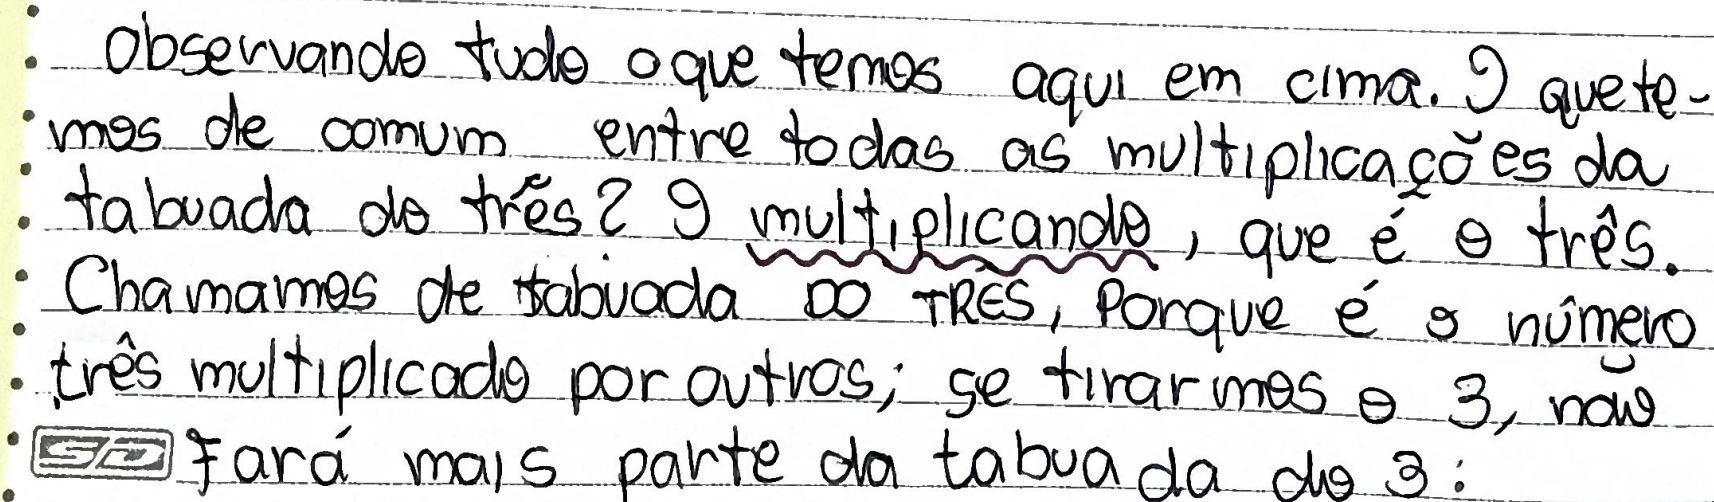 Observando tudo o que temos aqui em cima. O que te-
mos de comum entre todas as multiplicações da
tabuada do três? O multiplicando, que é o três.
Chamamos de tabuada DO TRÊS, Porque é o número
três multiplicado por outros; se tirarmos o 3, não
fará mais parte da tabuada do 3: